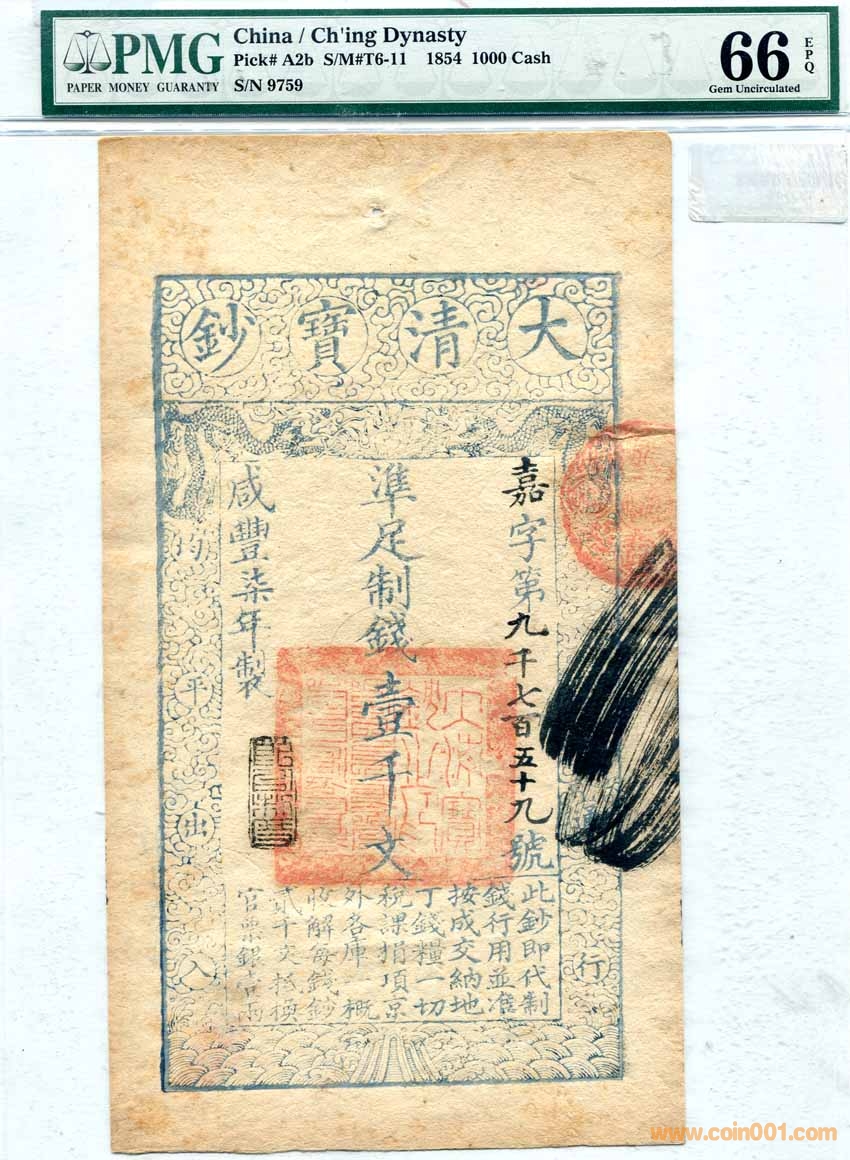 PMG
PAPER MONEY GUARANTY
China / Ch'ing Dynasty
Pick# A2b S/M#T6-11 1854 1000 Cash
S/N 9759
66 EPQ
Gem Uncirculated
大清寶鈔
嘉字第九千七百五十九號
準足制錢壹千文
咸豐柒年製
此鈔即代制
錢行用並准
按成交納地
丁錢糧一切
稅課捐項京
外各庫一概
收解每錢鈔
貳千文抵換
官票銀壹兩
行
均平出入
www.coin001.com